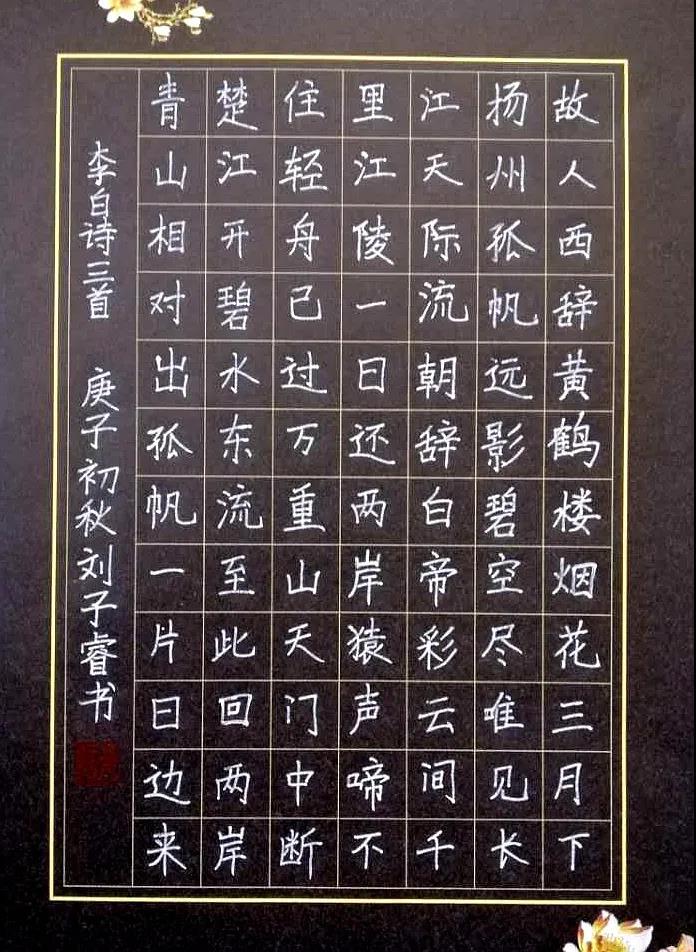 故人西辞黄鹤楼烟花三月下
扬州孤帆远影碧空尽唯见长
江天际流朝辞白帝彩云间千
里江陵一日还两岸猿声啼不
住轻舟已过万重山天门中断
楚江开碧水东流至此回两岸
青山相对出孤帆一片日边来
李白诗三首 庚子初秋刘子睿书